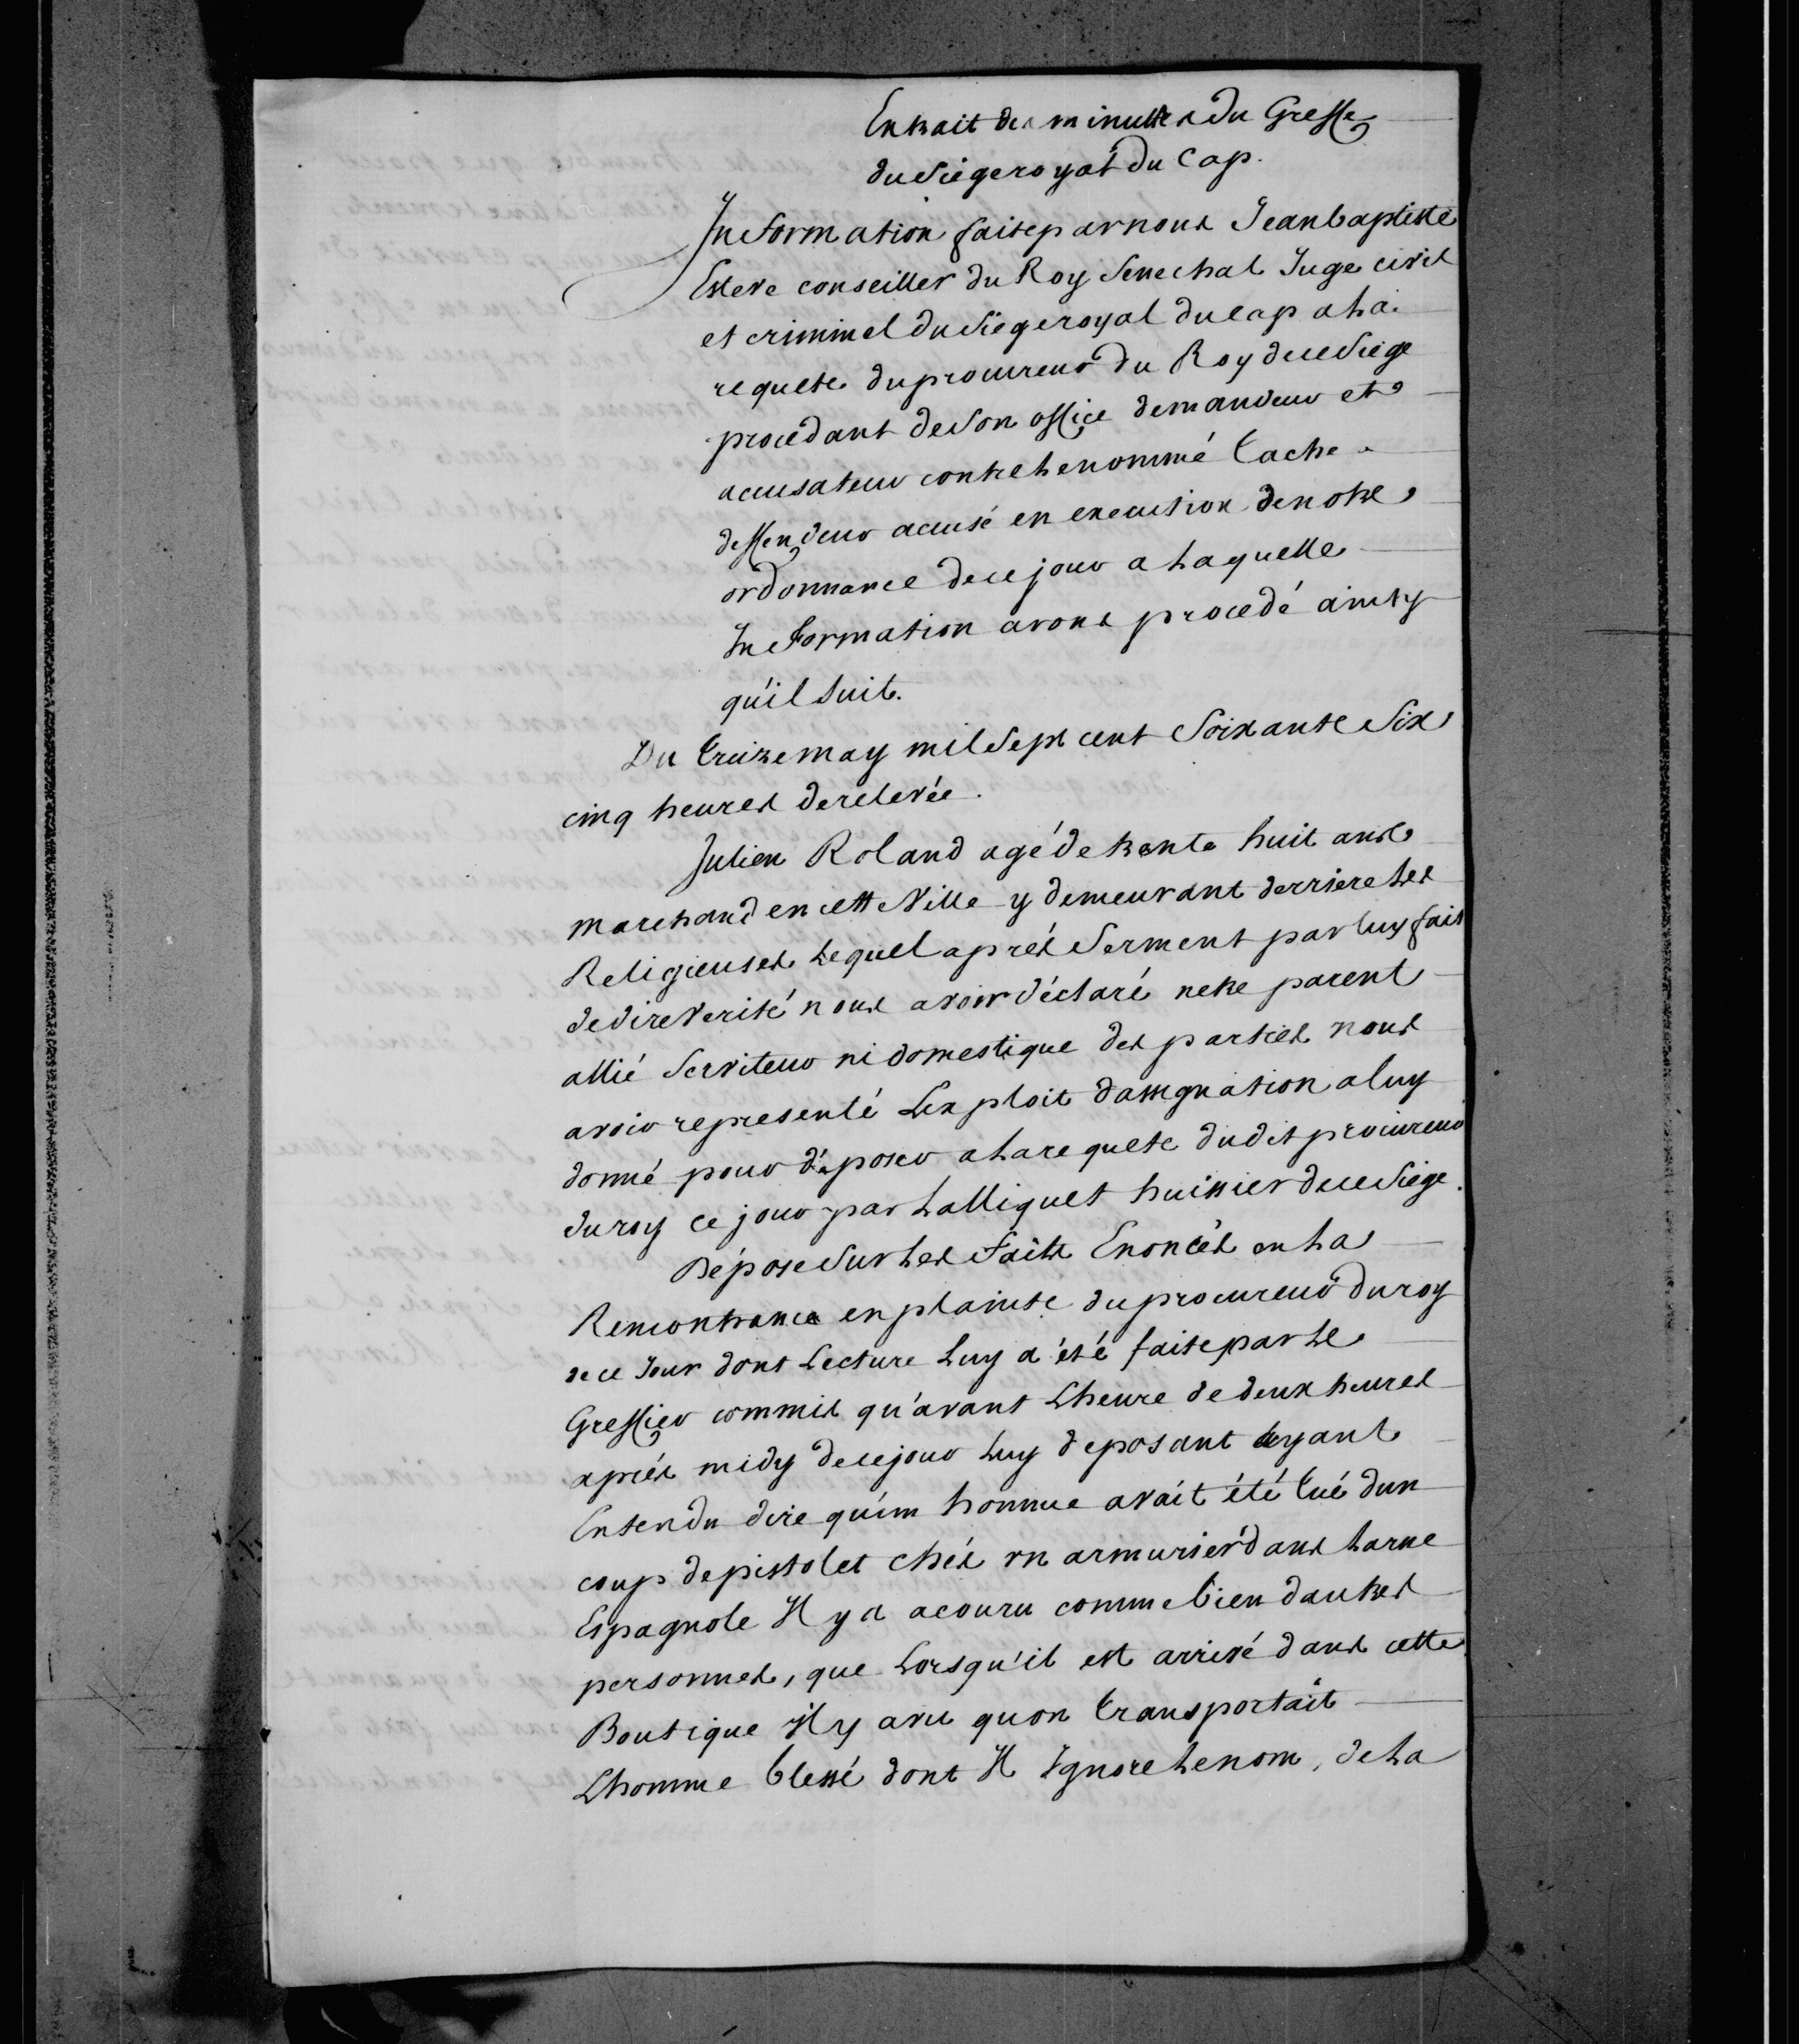 Extrait des minuttes du Greffe
du siege royal du Cap.
Information faite par nous Jean baptiste
Esteve conseiller du Roy Senechal Juge civil
et criminel du siege royal du Cap a la
requete du procureur du Roy de ce siege
procédant de son office demandeur et
accusateur contre le nommé Cache
deffendeur accusé en execution de notre
ordonnance de ce jour a laquelle
Information avons procedé ainsy
qu'il suit.
Du treize may mil sept cent soixante six
cinq heures de relevée.
Julien Roland agé de trente huit ans
marchand en cette Ville y demeurant derriere les
Religieuses lequel aprés serment par luy fait
de dire verité nous avoir déclaré netre parent
allié serviteur ni domestique des parties nous
avoir representé Lexploit dassignation a luy
donné pour déposer a la requete dudit procureur
du roy ce jour par Lalliquet huissier de ce siege.
Dépose sur les faits Enoncés en la
Remontrance en plainte du procureur du roy
de ce Jour dont Lecture luy a été faite par le
Greffier commis qu'avant Lheure de deux heures
aprés midy de ce jour luy deposant ayant
Entendu dire qu'un homme avait été tué dun
coup de pistolet chés un armurier dans la rue
Espagnole Il y a acouru comme bien dautres
personnes, que Lorsqu'il est arrivé dans cette
Boutique Il y a vu quon transportait
Lhomme blessé dont Il Ignore le nom, de la